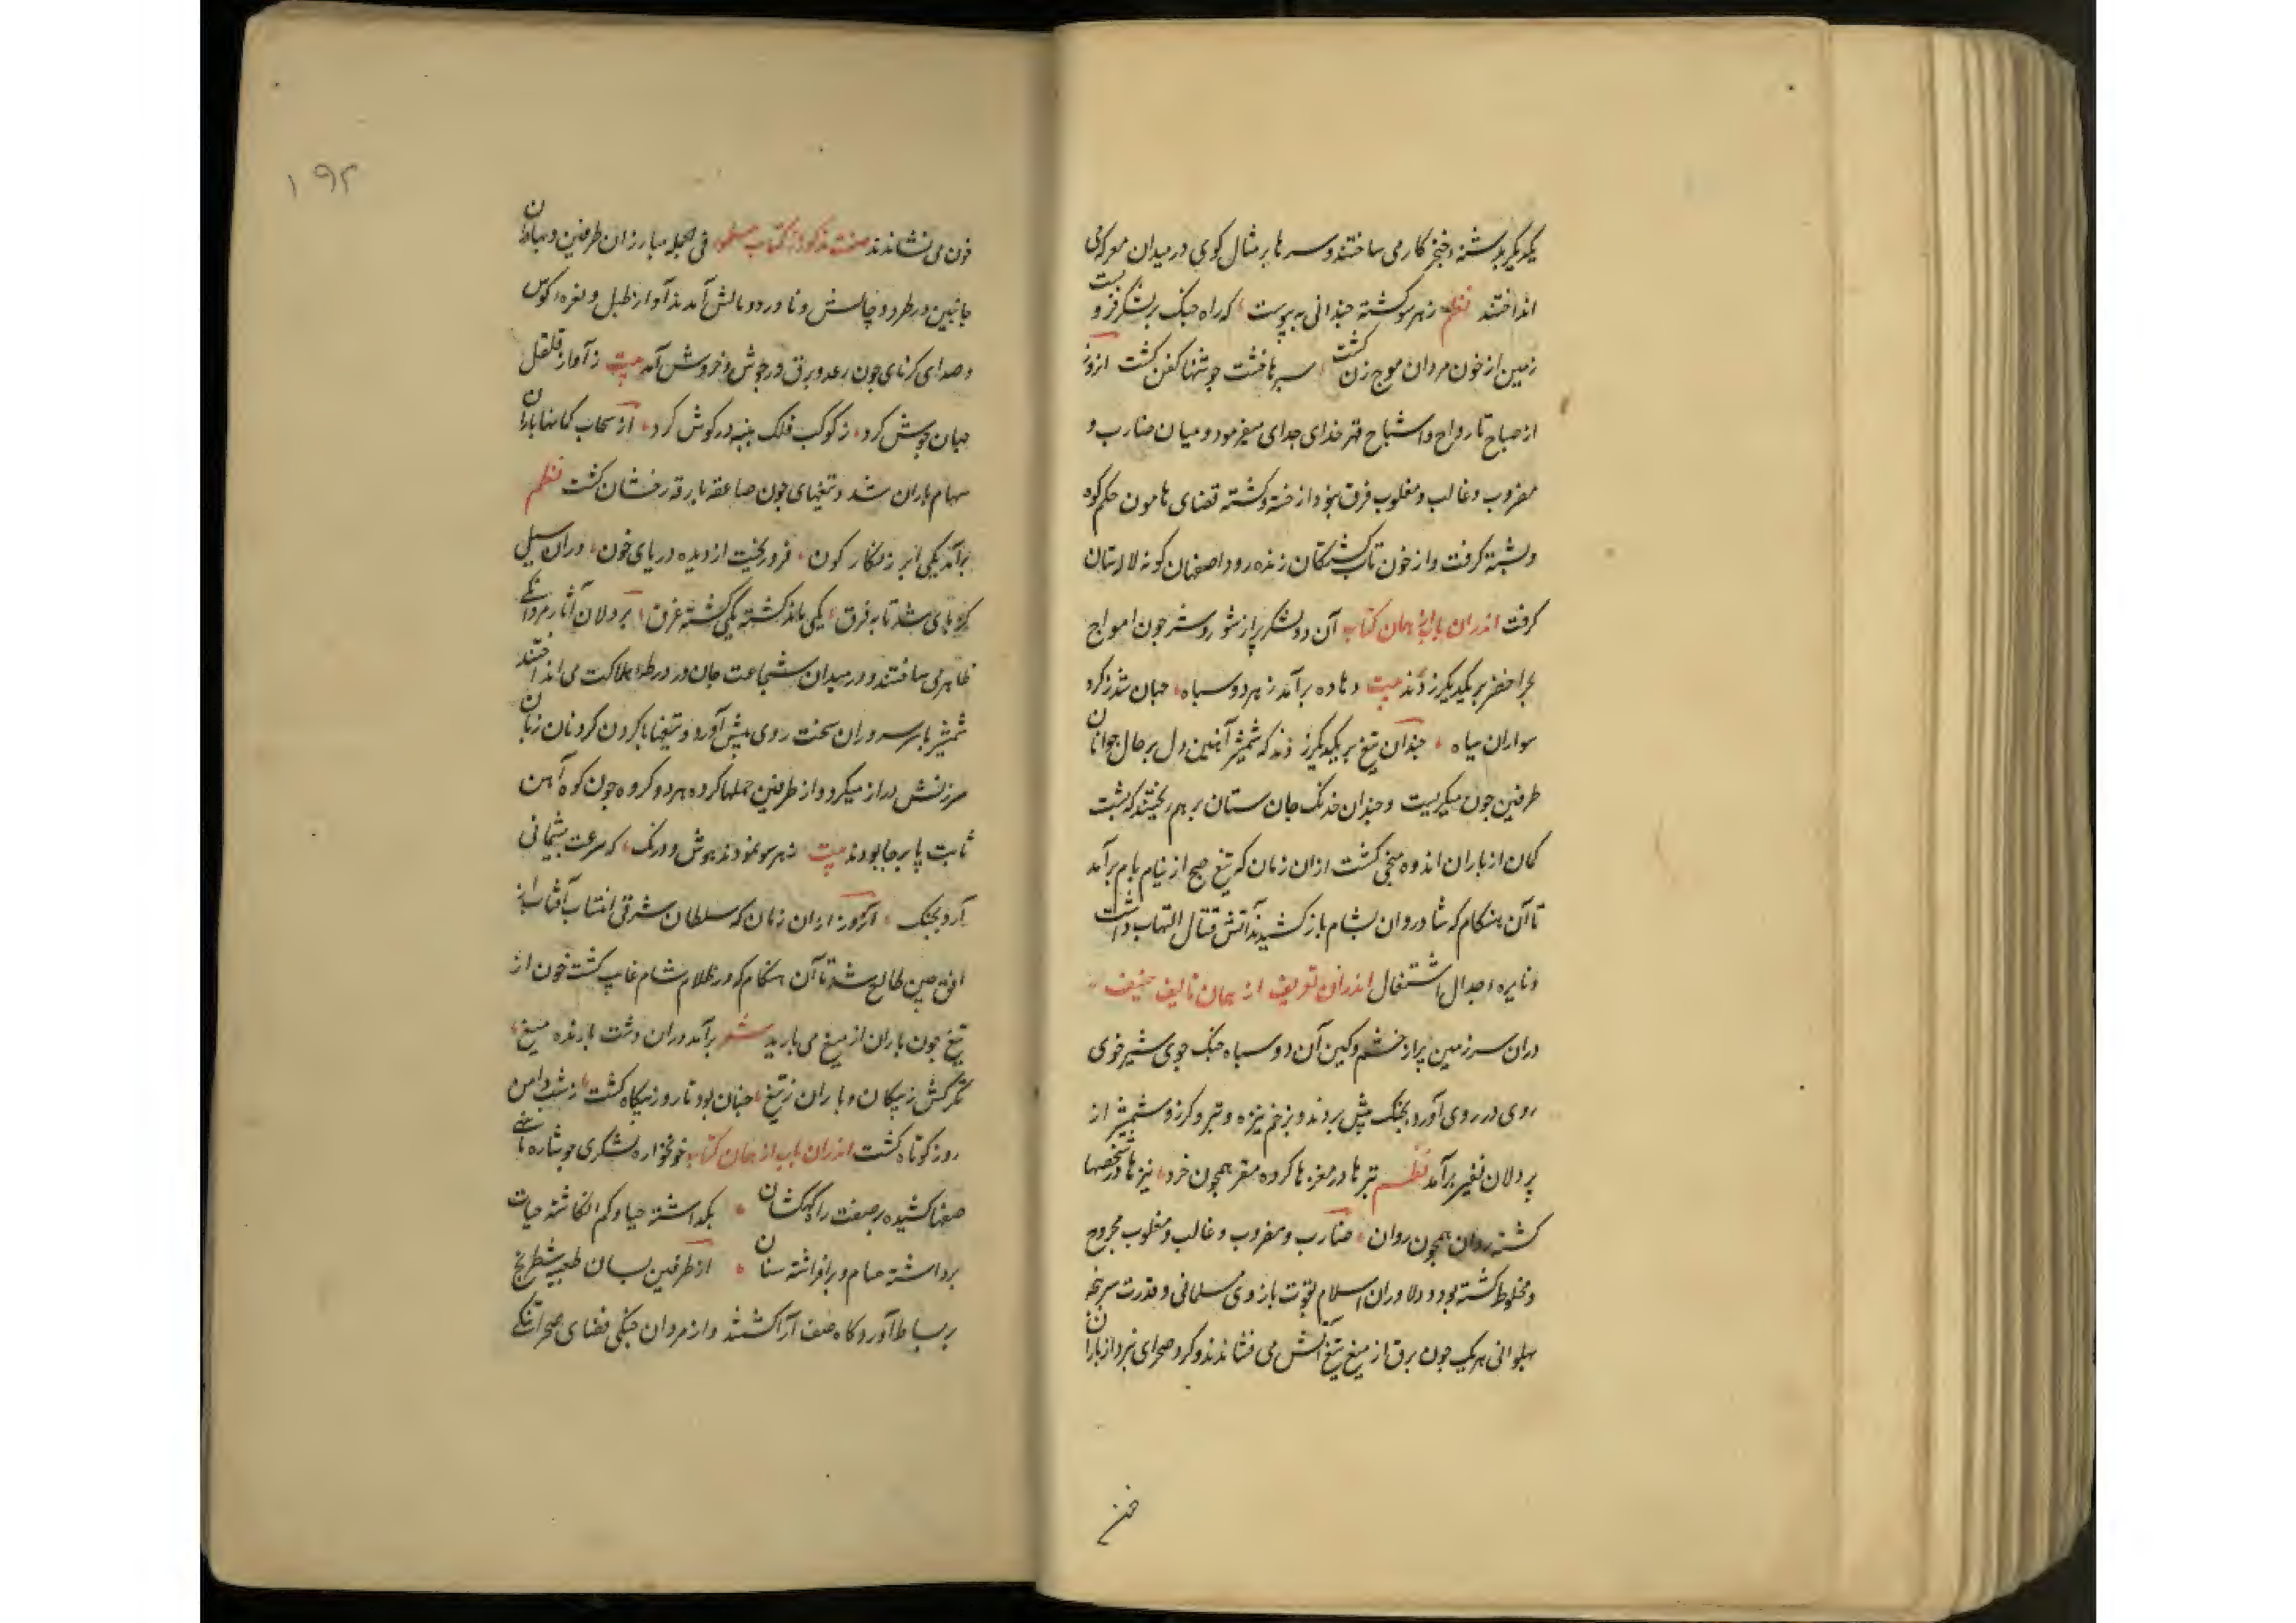 یکدیگر بدشنه و خنجر کار می ساختند و سرها بر مثال کوی در میدان معرکه می
انداختند نظم زهر سو کشته چندانی به پیوست که راه جنک بر لشکر فرو بست
زمین از خون مردان موج زن کشت سپرها خشت جوشنها کفن کشت ازروز
از صباح تا رواح و اشباح قهر خدای جدای میفرمود و میان ضارب و
مضروب و غالب و مغلوب فرق نبود از خسته و کشته قضای هامون حکم کوه
و پشته کرفت و از خون ناب کشتکان زنده رود اصفهان کونه لالستان
کرفت اندران باب از همان کتاب آن دو لشکر پر از شور و شر چون امواج
بحر اخضر بر یکدیکر زدند بیت دهاده برآمد ز هر دو سپاه جهان شد ز کرد
سواران سیاه چندان تیغ بر یکدیکر زدند که شمشیر آهنین دل بر حال جوانان
طرفین خون میکریست و چندان خدنک جان ستان بر هم ریختند که پشت
کمان از باران اندوه منحنی کشت ازان زمان که تیغ صبح از نیام بام برآمد
تا آن هنکام که شادروان بشام باز کشیدند آتش قتال التهاب داشت
و نایره جدال اشتعال اندران تعریف از همان تالیف حنیف
دران سرزمین پر از خشم و کین آن دو سپاه جنک جوی شیر خوی
روی در روی آورد بجنک پیش بردند و بزخم نیزه و تیر و کرز و شمشیر از
پردلان نفیر برآمد نظم تیرها در مغزها کرده مقر همچون خرد نیزها در شخصها
کشته روان همچون روان ضارب و مضروب و غالب و مغلوب مجروح
و مخلوط کشته بود و دلاوران اسلام بقوت بازوی مسلمانی و قدرت سرپنجه
پهلوانی هر یک چون برق از میغ تیغ آتش می فشاندند و کرد صحرای نبرد از باران
خون
۱۹۲
خون می نشاندند صفت مذکور از کتاب مسطور فی الجمله مبارزان طرفین و مبادران
جانبین در طرد و چالش و ناورد و مالش آمدند آواز طبل و نعره کوس
و صدای کرنای چون رعد و برق در جوش و خروش آمد بیت ز آواز قلقل
جهان جوش کرد ز کوکب فلک پنبه در کوش کرد از سحاب کمانها باران
سهام باران شد و تیغهای چون صاعقه بارقه رخشان کشت نظم
برآمد یکی ابر زنکار کون فرو ریخت از دیده دریای خون دران سیل
کز پای شد تا به فرق یکی ماند کشته یکی کشته غرق پردلان آثار مردانکی
ظاهر می ساختند و در میدان شجاعت جان در ورطه هلاکت می انداختند
شمشیر با سر سروران سخت روی پیش آورد و تیغها با کردن کردنان زبان
سرزنش دراز میکرد و از طرفین حملها کرده هر دو کروه چون کوه آهن
ثابت پا بر جا بودند بیت ز هر سو نمودند هوش و درنک که سرعت پشیمانی
آرد بجنک آنروز ازان زمان که سلطان شرقی انتساب آفتاب از
افق چین طالع شد تا آن هنکام که در ظلام شام غایب کشت خون از
تیغ چون باران از میغ می بارید شعر برآمد دران دشت بارنده میغ
تکرکش ز پیکان و باران ز تیغ چنان بود تا روز بیکاه کشت ز شب دامن
روز کوتاه کشت اندران باب از همان کتاب خونخواره لشکری جو ستاره تا
صفها کشیده بر صفت راه کهکشان بکداشته حیا و کم انکاشته حیات
برداشته حسام و برافراشته سنان از طرفین بسان طعبیه شطرنج
بر بساط آوردکاه صف آرا کشتند و از مردان جنکی فضای صحرا تنکی